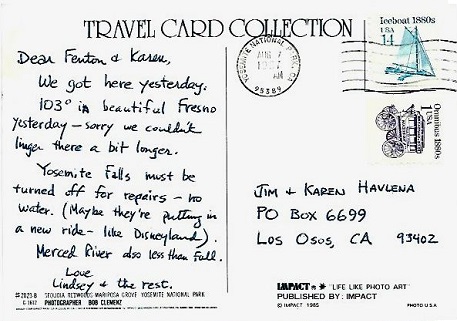 TRAVEL CARD COLLECTION
Dear Fenton & Karen,
We got here yesterday.
103° in beautiful Fresno
yesterday - sorry we couldn't
linger there a bit longer.
Yosemite Falls must be
turned off for repairs - no
water. (Maybe they're putting in
a new ride - like Disneyland).
Merced River also less than full.
Love
Lindsey & the rest.
SEQUOIA REDWOODS MARIPOSA GROVE YOSEMITE NATIONAL PARK
PHOTOGRAPHER BOB CLEMENZ
YOSEMITE NATIONAL
AUG
AM
95389
Iceboat 1880s
USA
14
Omnibus 1880s
USA
1
JIM & KAREN HAVLENA
PO BOX 6699
LOS OSOS, CA 93402
IMPACT "LIFE LIKE PHOTO ART"
PUBLISHED BY: IMPACT
© IMPACT 1985
PHOTO U.S.A.